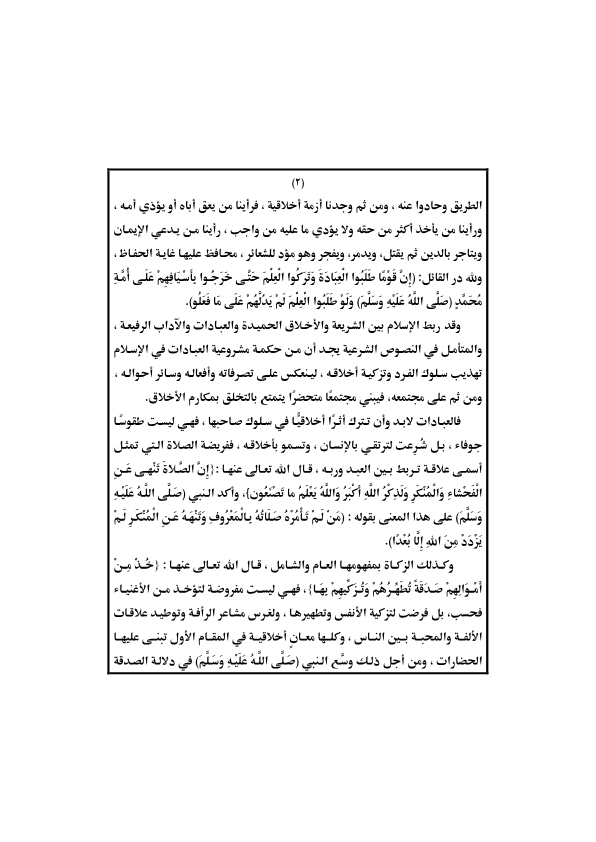 (٢)
الطريق وحادوا عنه ، ومن ثم وجدنا أزمة أخلاقية ، فرأينا من يعق أباه أو يؤذي أمه ،
ورأينا من يأخذ أكثر من حقه ولا يؤدي ما عليه من واجب ، رأينا من يدعي الإيمان
ويتاجر بالدين ثم يقتل، ويدمر، ويفجر وهو مؤد للشعائر ، محافظ عليها غاية الحفاظ ،
ولله در القائل: (إِنَّ قَوْمًا طَلَبُوا الْعِبَادَةَ وَتَرَكُوا الْعِلْمَ حَتَّى خَرَجُوا بِأَسْيَافِهِمْ عَلَى أُمَّةِ
مُحَمَّدٍ (صَلَّى اللَّهُ عَلَيْهِ وَسَلَّمَ) وَلَوْ طَلَبُوا الْعِلْمَ لَمْ يَدُلَّهُمْ عَلَى مَا فَعَلُو).
وقد ربط الإسلام بين الشريعة والأخلاق الحميدة والعبادات والآداب الرفيعة ،
والمتأمل في النصوص الشرعية يجد أن من حكمة مشروعية العبادات في الإسلام
تهذيب سلوك الفرد وتزكية أخلاقه ، لينعكس على تصرفاته وأفعاله وسائر أحواله ،
ومن ثم على مجتمعه، فيبني مجتمعًا متحضرًا يتمتع بالتخلق بمكارم الأخلاق.
فالعبادات لابد وأن تترك أثرًا أخلاقيًّا في سلوك صاحبها ، فهي ليست طقوسًا
جوفاء ، بل شُرعت لترتقي بالإنسان ، وتسمو بأخلاقه ، ففريضة الصلاة التي تمثل
أسمى علاقة تربط بين العبد وربه ، قال الله تعالى عنها :{إِنَّ الصَّلاةَ تَنْهَى عَنِ
الْفَحْشاءِ وَالْمُنْكَرِ وَلَذِكْرُ اللَّهِ أَكْبَرُ وَاللَّهُ يَعْلَمُ ما تَصْنَعُون}، وأكد النبي (صَلَّى اللَّهُ عَلَيْهِ
وَسَلَّمَ) على هذا المعنى بقوله : (مَنْ لَمْ تَأْمُرْهُ صَلَاتُهُ بِالْمَعْرُوفِ وَتَنْهَهُ عَنِ الْمُنْكَرِ لَمْ
يَزْدَدْ مِنَ اللهِ إِلَّا بُعْدًا).
وكذلك الزكاة بمفهومها العام والشامل ، قال الله تعالى عنها : {خُذْ مِنْ
أَمْوَالِهِمْ صَدَقَةً تُطَهِّرُهُمْ وَتُزَكِّيهِمْ بِهَا}، فهي ليست مفروضة لتؤخذ من الأغنياء
فحسب، بل فرضت لتزكية الأنفس وتطهيرها ، ولغرس مشاعر الرأفة وتوطيد علاقات
الألفة والمحبة بين الناس ، وكلها معانٍ أخلاقية في المقام الأول تبنى عليها
الحضارات ، ومن أجل ذلك وسَّع النبي (صَلَّى اللَّهُ عَلَيْهِ وَسَلَّمَ) في دلالة الصدقة